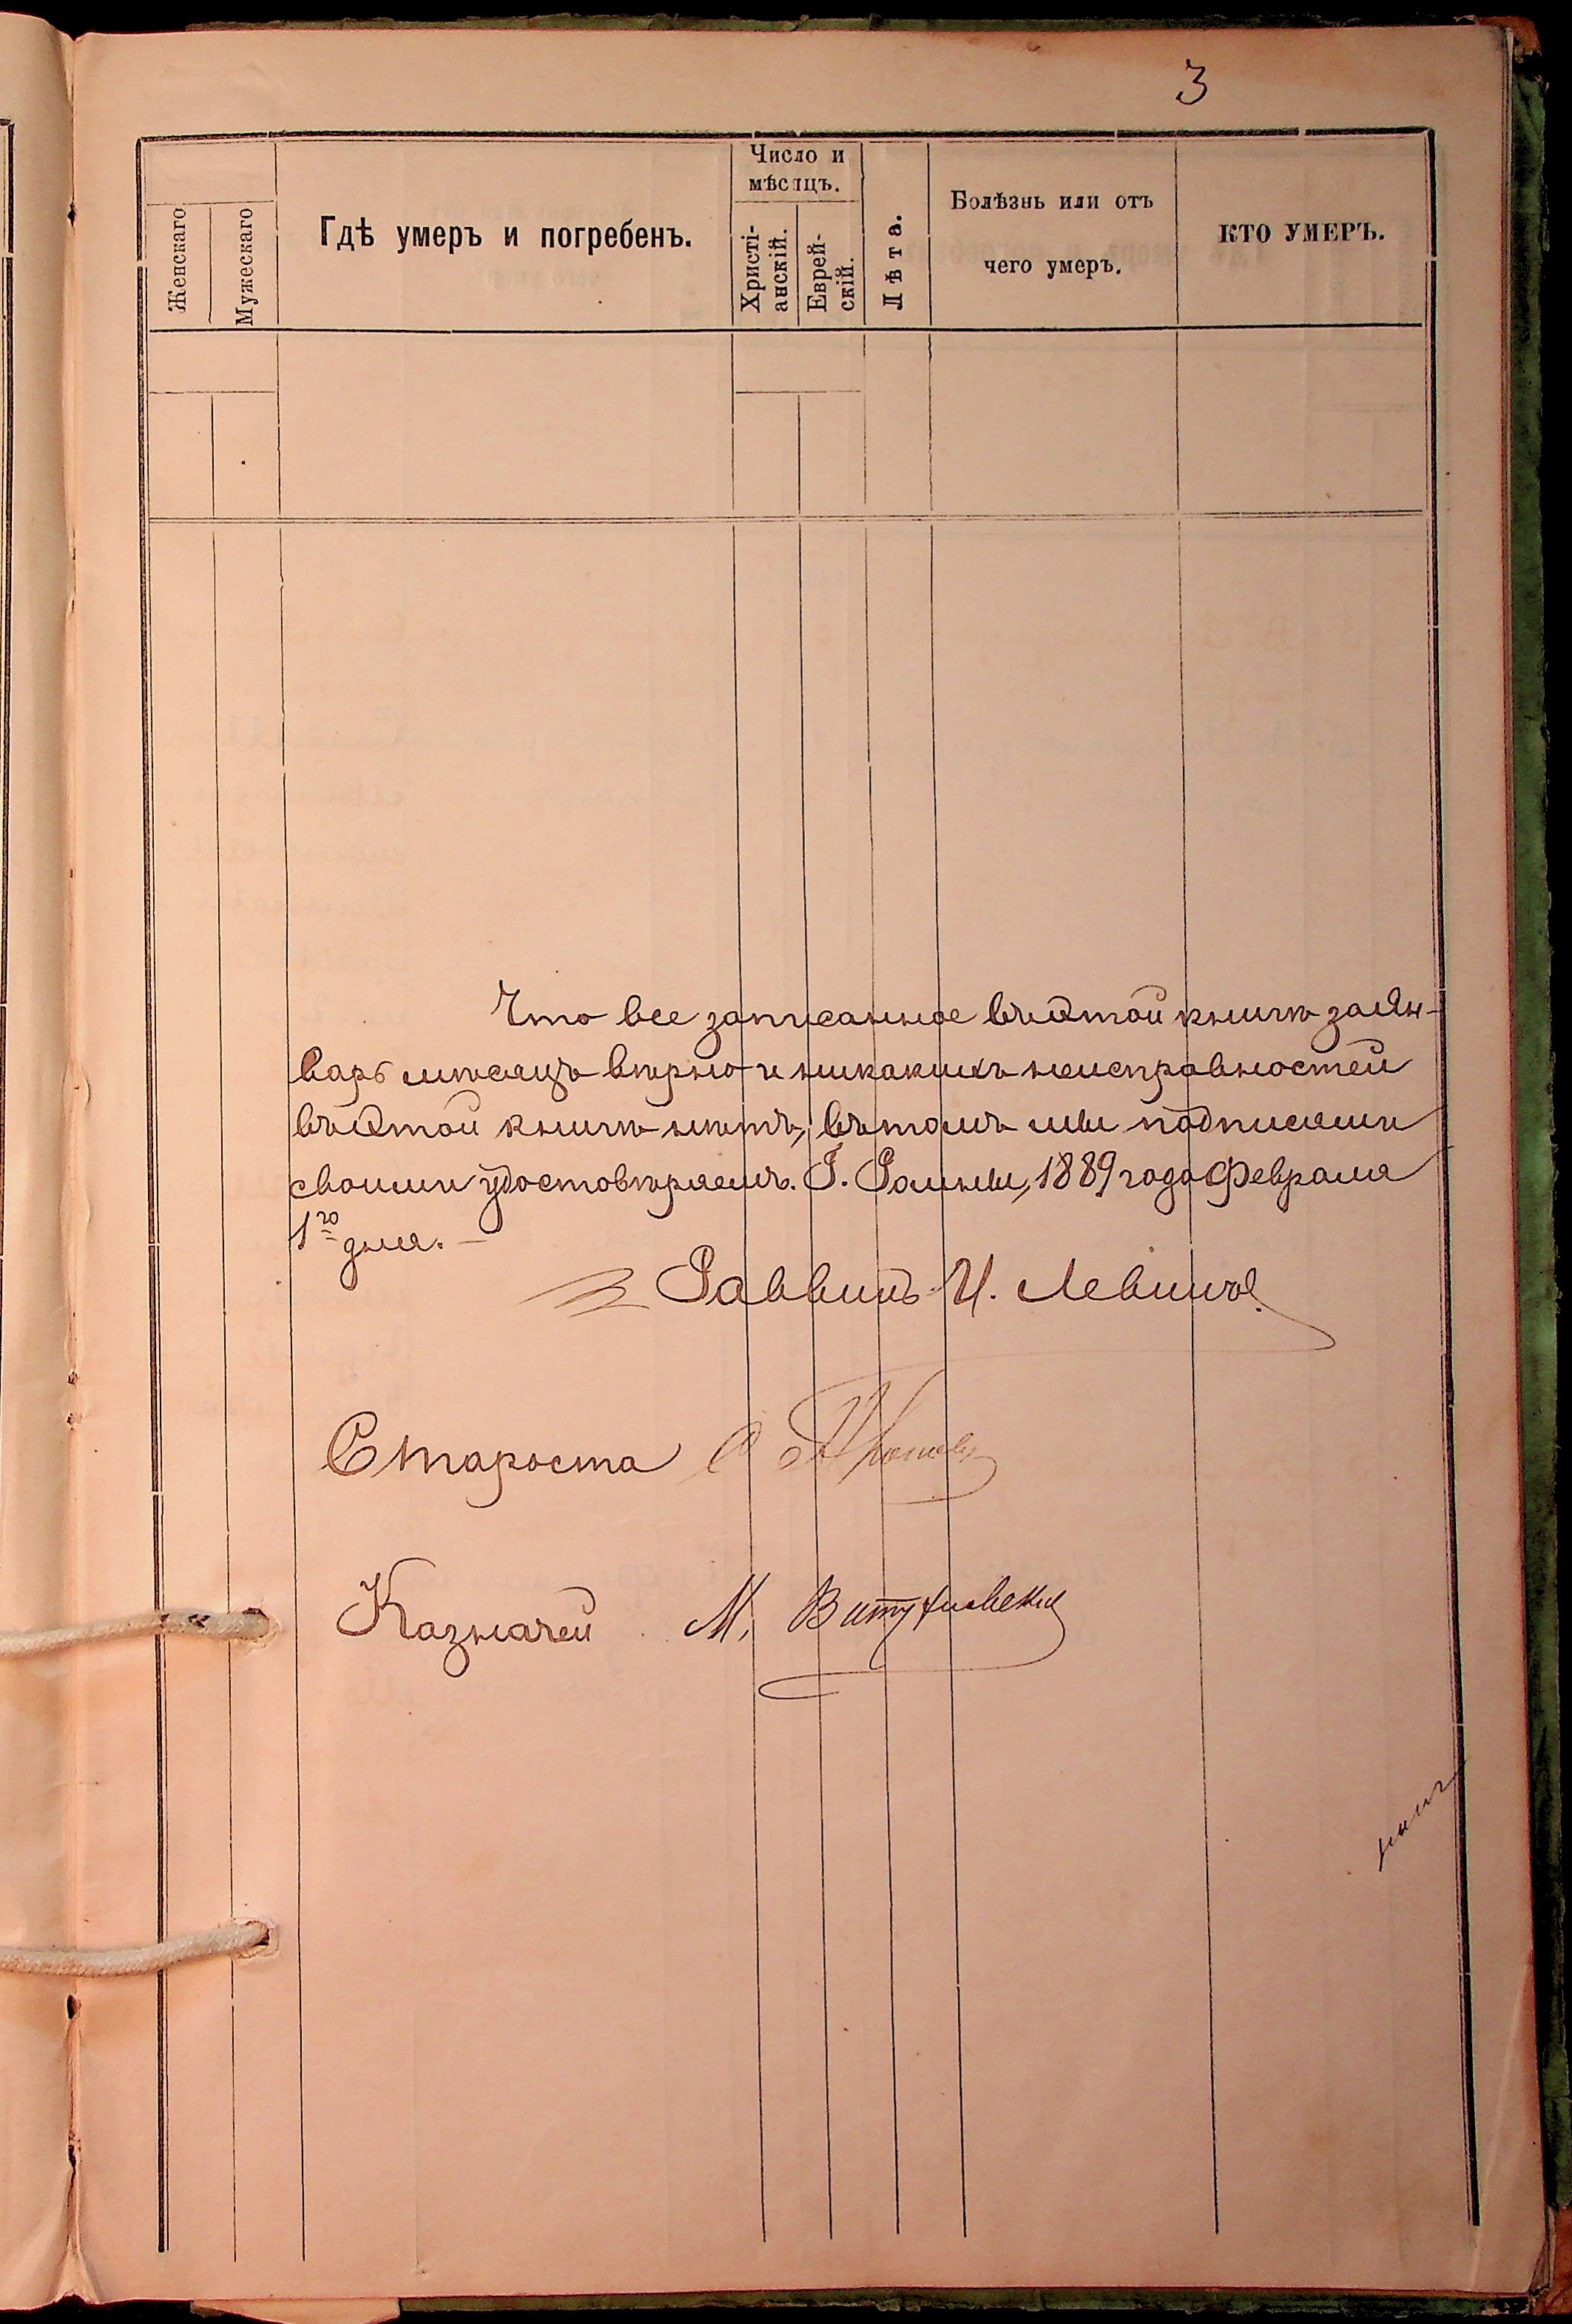 3
Женскаго
Мужескаго
Гдѣ умеръ и погребенъ.
Число и
мѣсяцъ.
Христі-
анскій.
Еврей-
скій.
Лѣта.
Болѣзнь или отъ
чего умеръ.
КТО УМЕРЪ.
Что все записанное въ этой книгѣ за Ян-
варь мѣсяцъ вѣрно и никакихъ неисправностей
въ этой книгѣ нѣтъ, въ томъ мы подписями
своими удостовѣряемъ. Г. Ромны, 1889 года Февраля
1го дня. —
Раввинъ И. Левинъ
Староста
Казначей М.